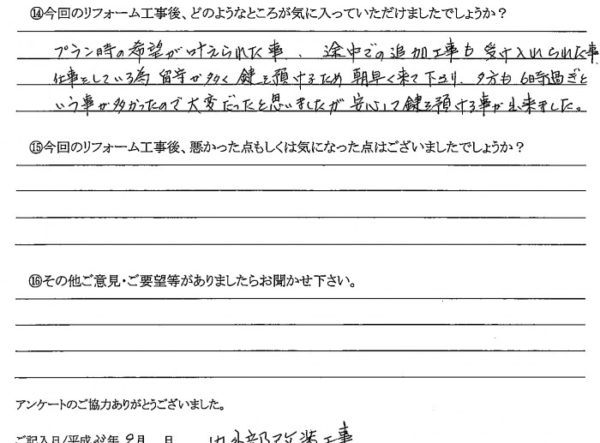 ⑭今回のリフォーム工事後、どのようなところが気に入っていただけましたでしょうか？
プラン時の希望が叶えられた事、途中での追加工事も受け入れられた事
仕事をしている為留守が多く鍵を預けるため朝早く来て下さり、夕方も6時過ぎと
いう事が多かったので大変だったと思いましたが安心して鍵を預ける事が出来ました。
⑮今回のリフォーム工事後、悪かった点もしくは気になった点はございましたでしょうか？
⑯その他ご意見・ご要望等がありましたらお聞かせ下さい。
アンケートのご協力ありがとうございました。
ご記入日/平成 年9月 日 内外部改装工事